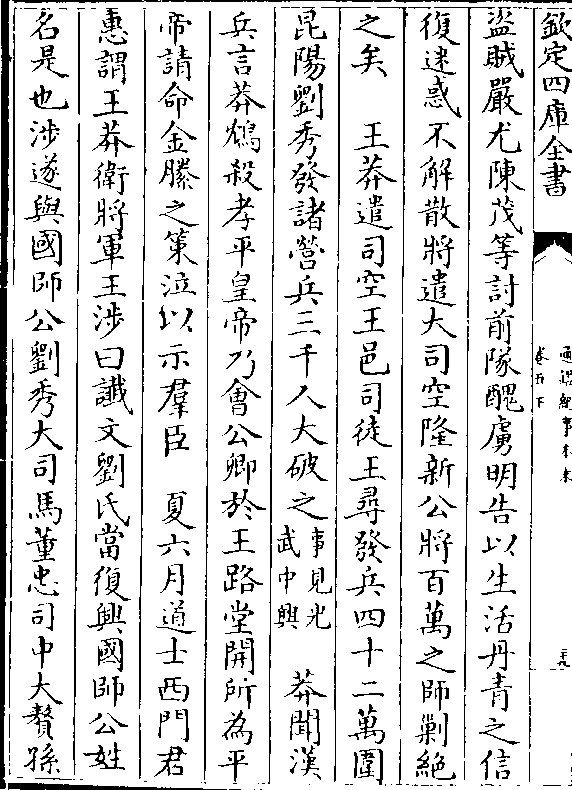 欽定四庫全書
通鑑紀事本末
卷五下
盜賊嚴尤陳茂等討前隊醜虜明告以生活丹青之信
復迷惑不解散將遣大司空隆新公將百萬之師剿絕
之矣　王莽遣司空王邑司徒王尋發兵四十二萬圍
昆陽劉秀發諸營兵三千人大破之事見光武中興　莽聞漢
兵言莽鴆殺孝平皇帝乃會公卿於王路堂開所為平
帝請命金縢之策泣以示羣臣　夏六月道士西門君
惠謂王莽衛將軍王涉曰讖文劉氏當復興國師公姓
名是也涉遂與國師公劉秀大司馬董忠司中大贅孫